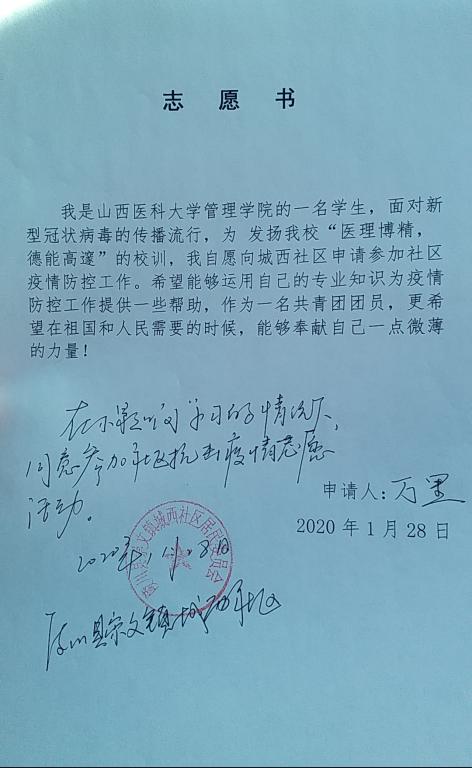 志 愿 书
我是山西医科大学管理学院的一名学生，面对新
型冠状病毒的传播流行，为 发扬我校“医理博精，
德能高邃”的校训，我自愿向城西社区申请参加社区
疫情防控工作。希望能够运用自己的专业知识为疫情
防控工作提供一些帮助，作为一名共青团团员，更希
望在祖国和人民需要的时候，能够奉献自己一点微薄
的力量！
在不影响学习的情况下，
同意参加社区抗击疫情志愿
活动。
申请人：万里
2020 年 1 月 28 日
2020年1月28日
陵川县崇文镇城西社区居民委员会
陵川县崇文镇城西社区